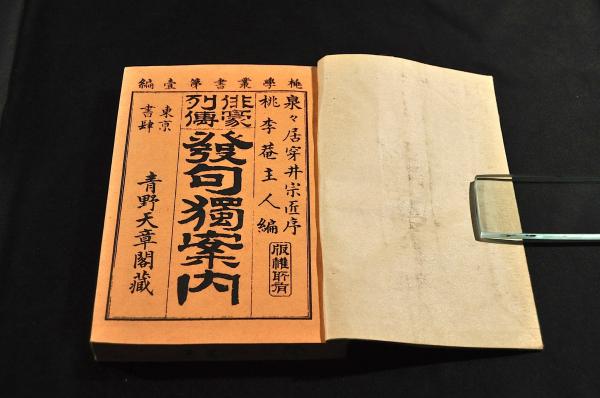 桃學叢書第壹編
泉々居穿井宗匠序
桃李菴主人編
版權所有
俳豪
列傳
發句獨案内
東京
書肆
青野天章閣藏